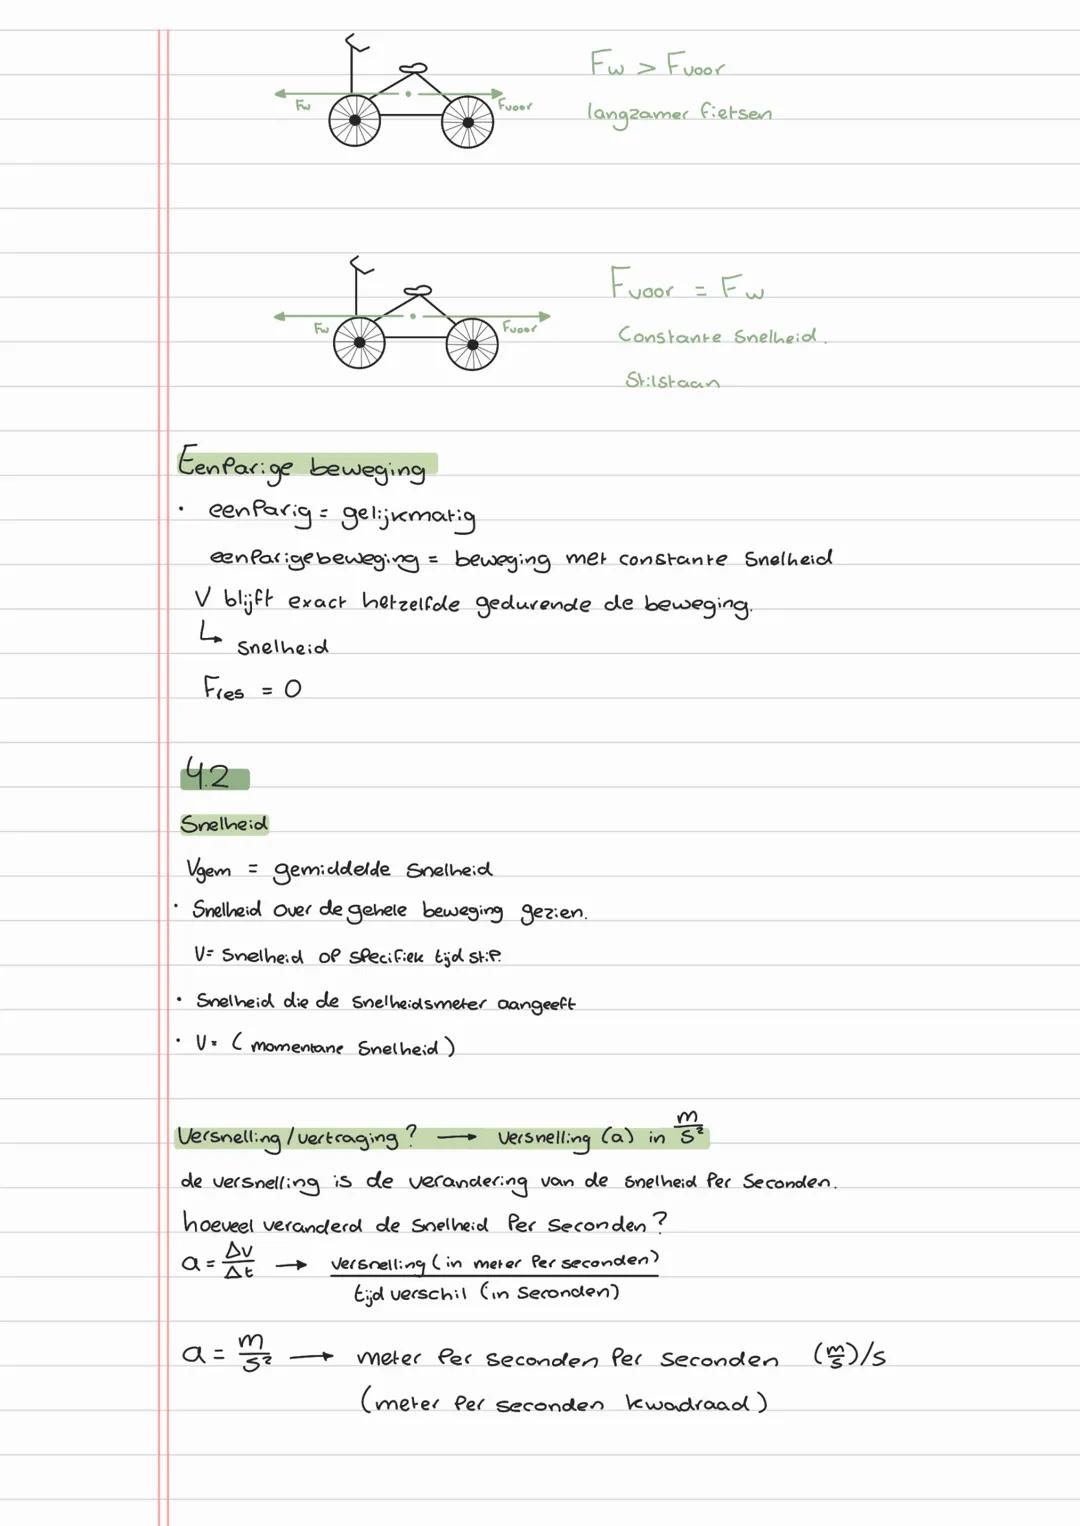 Fw > Fvoor
Fw
Fvoor
langzamer fietsen
Fvoor = Fw
Fw
Fvoor
Constante Snelheid.
Stilstaan
Eenparige beweging
• eenparig = gelijkmatig
eenparigebeweging = beweging met constante Snelheid
V blijft exact hetzelfde gedurende de beweging.
↳ Snelheid
Fres = 0
4.2
Snelheid
Vgem = gemiddelde Snelheid
• Snelheid over de gehele beweging gezien.
V= Snelheid op specifiek tijdstip.
• Snelheid die de Snelheidsmeter aangeeft
• V= (momentane Snelheid)
Versnelling/vertraging? → versnelling (a) in m/s²
de versnelling is de verandering van de snelheid Per Seconden.
hoeveel veranderd de Snelheid Per Seconden?
a = Δv/Δt → versnelling (in meter Per seconden)
tijd verschil (in Seconden)
a = m/s² → meter Per seconden Per seconden (m/s)/s
(meter Per seconden kwadraad)